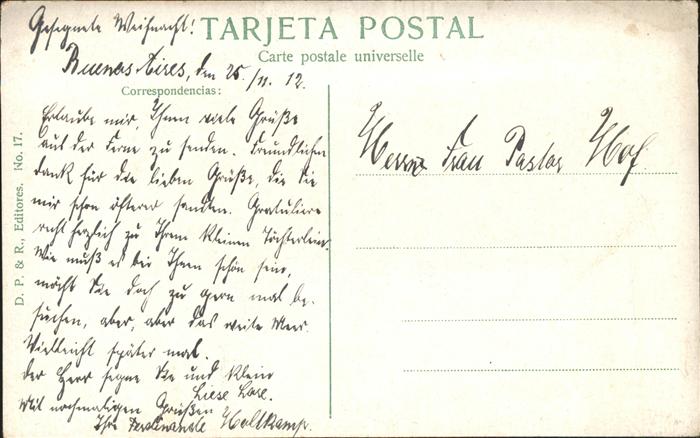 Gesegnete Weihnacht!
TARJETA POSTAL
Carte postale universelle
Buenos Aires, den 25./11. 12.
Correspondencias:
Erlaube mir, Ihnen viele Grüße
aus der Ferne zu senden. Freundlichen
Dank für die lieben Grüße, die Sie
mir schon öfterer sandten. Gratuliere
recht herzlich zu Ihrem kleinen Töchterlein.
Wie muß es bei Ihnen schön sein,
möcht Sie doch zu gern mal be-
suchen, aber, aber das weite Meer.
Vielleicht später mal.
Der Herr segne Sie und klein
Liese Lore.
Mit nochmaligen Grüßen
Ihre Holtkamp.
Herrn Frau Pastor Hof
D. P. & R., Editores. No. 17.